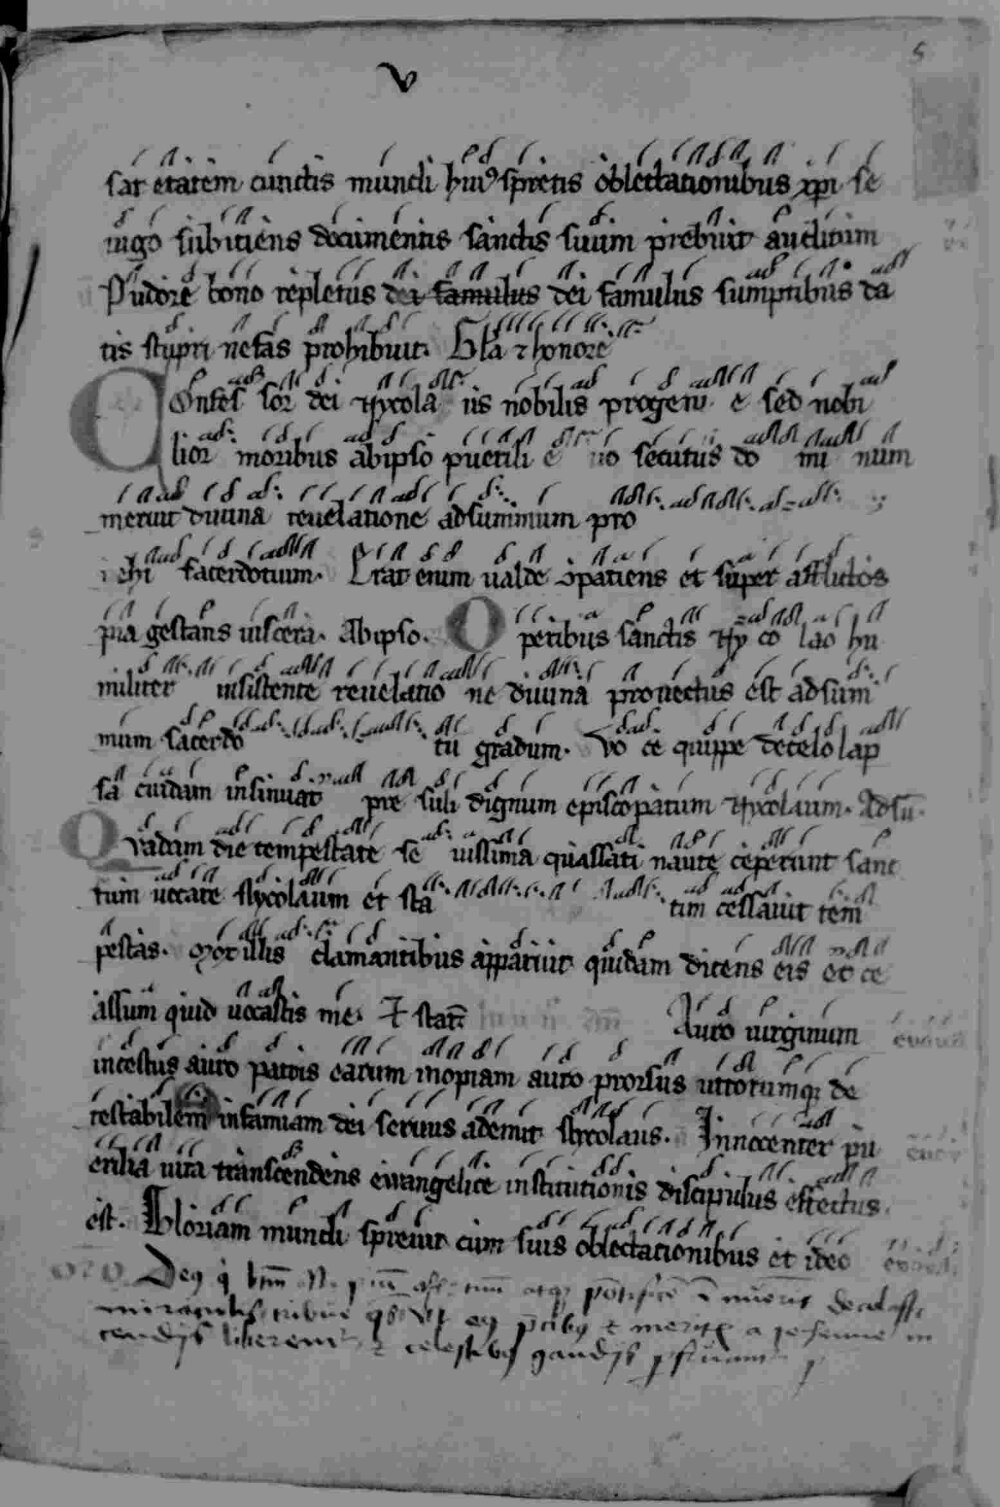 5
V
sar etatem cunctis mundi huiꝰ spretis oblectationibus xpi se
iugo subitiens documentis sanctis suum prebuit auditum
Pudore bono repletus dei famulus dei famulus sumptibus da
tis stupri nefas prohibuit. Gła ⁊ honore
Confes sor dei Nycola us nobilis progenie sed nobi
lior moribus abipso puerili euo secutus do mi num
meruit diuina reuelatione adsummum pro
uehi sacerdotium. Erat enim ualde cōpatiens et super afflictos
pia gestans uiscera. Abipso. Operibus sanctis Nyco lao hu
militer insistente reuelatio ne diuina prouectus est adsum
mum sacerdo tii gradum. Vo ce quippe decelo lap
sa cuidam insinuat pre suli dignum episcopatum Nycolaum. Adsū.
Quadam die tempestate se uissima quassati naute ceperunt sanc
tum uocare Nycolaum et sta tim cessauit tem
pestas. Mox illis clamantibus apparuit quidam dicens eis ec ce
assum quid uocastis me. Et stat.  Auro uirginum
incestus auro patris earum inopiam auro prorsus utrorumqꝫ de
testabilem infamiam dei seruus ademit Nycolaus. Innocenter pu
erilia uita transcendens euuangelice institutionis discipulus effectus
est. Gloriam mundi spreuit cum suis oblectationibus et ideo
oro Deꝰ q̇ btm̄ N. pontificē mīeris decorasti
miraculis tribue qs vt eꝰ p̄cibꝰ ⁊ meritꝭ a gehenne in
cendijs liberemur ⁊ celestibꝰ gaudijs